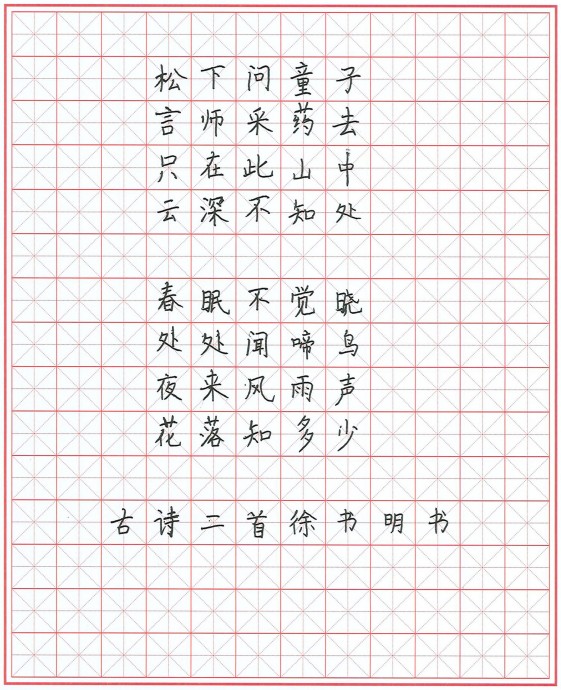 松下问童子
言师采药去
只在此山中
云深不知处
春眠不觉晓
处处闻啼鸟
夜来风雨声
花落知多少
古诗二首徐书明书